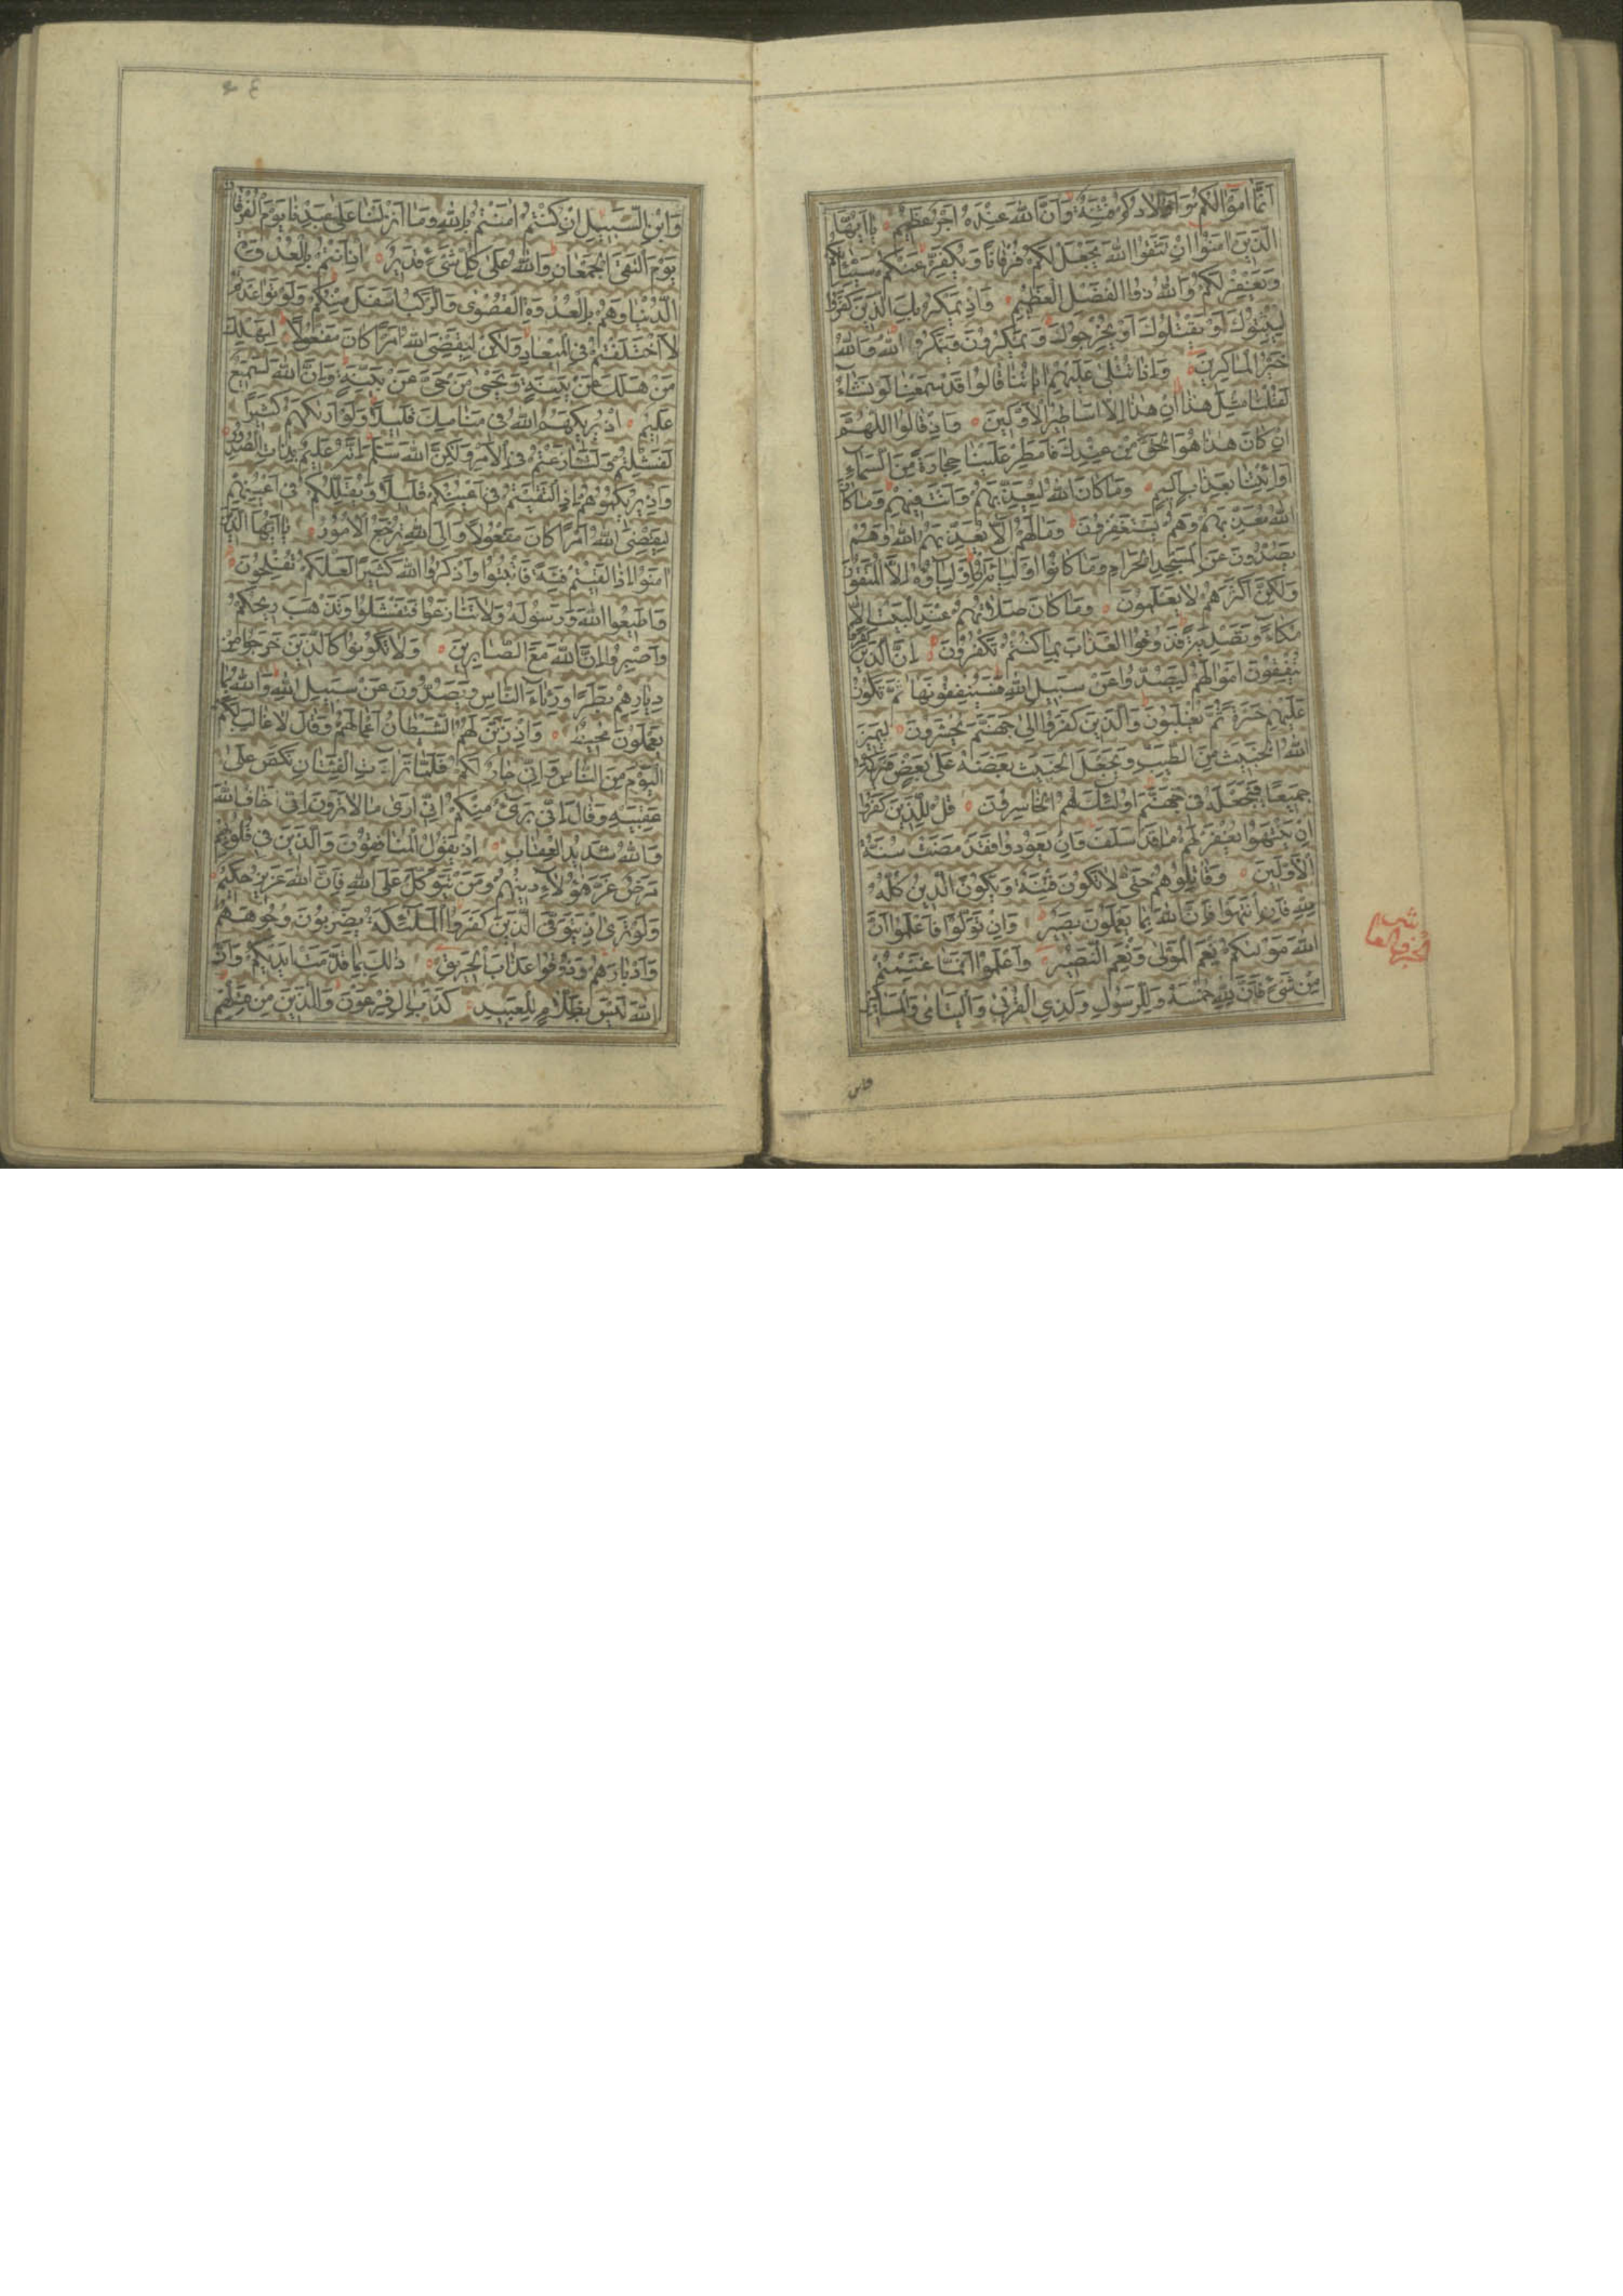 انما اموالكم واولادكم فتنة وان الله عنده اجر عظيم يا ايها
الذين امنوا ان تتقوا الله يجعل لكم فرقانا ويكفر عنكم سيئاتكم
ويغفر لكم والله ذوا الفضل العظيم واذ يمكر بك الذين كفروا
ليثبتوك او يقتلوك او يخرجوك ويمكرون ويمكر الله والله
خير الماكرين واذا تتلى عليهم اياتنا قالوا قد سمعنا لو نشاء
لقلنا مثل هذا ان هذا الا اساطير الاولين واذ قالوا اللهم
ان كان هذا هو الحق من عندك فامطر علينا حجارة من السماء
او ائتنا بعذاب اليم وما كان الله ليعذبهم وانت فيهم وما كان
الله معذبهم وهم يستغفرون وما لهم الا يعذبهم الله وهم
يصدون عن المسجد الحرام وما كانوا اولياءه ان اولياؤه الا المتقون
ولكن اكثرهم لا يعلمون وما كان صلاتهم عند البيت الا
مكاء وتصدية فذوقوا العذاب بما كنتم تكفرون ان الذين كفروا
ينفقون اموالهم ليصدوا عن سبيل الله فسينفقونها ثم تكون
عليهم حسرة ثم يغلبون والذين كفروا الى جهنم يحشرون ليميز
الله الخبيث من الطيب ويجعل الخبيث بعضه على بعض فيركمه
جميعا فيجعله في جهنم اولئك هم الخاسرون قل للذين كفروا
ان ينتهوا يغفر لهم ما قد سلف وان يعودوا فقد مضت سنة
الاولين وقاتلوهم حتى لا تكون فتنة ويكون الدين كله
لله فان انتهوا فان الله بما يعملون بصير وان تولوا فاعلموا ان
الله موليكم نعم المولى ونعم النصير واعلموا انما غنمتم
من شيء فان لله خمسه وللرسول ولذي القربى واليتامى والمساكين
الجزو العاشر
وابن
٤٠
وابن السبيل ان كنتم امنتم بالله وما انزلنا على عبدنا يوم الفرقان
يوم التقى الجمعان والله على كل شيء قدير اذ انتم بالعدوة
الدنيا وهم بالعدوة القصوى والركب اسفل منكم ولو تواعدتم
لاختلفتم في الميعاد ولكن ليقضي الله امرا كان مفعولا ليهلك
من هلك عن بينة ويحيى من حي عن بينة وان الله لسميع
عليم اذ يريكهم الله في منامك قليلا ولو اريكهم كثيرا
لفشلتم ولتنازعتم في الامر ولكن الله سلم انه عليم بذات الصدور
واذ يريكموهم اذ التقيتم في اعينكم قليلا ويقللكم في اعينهم
ليقضي الله امرا كان مفعولا والى الله ترجع الامور يا ايها الذين
امنوا اذا لقيتم فئة فاثبتوا واذكروا الله كثيرا لعلكم تفلحون
واطيعوا الله ورسوله ولا تنازعوا فتفشلوا وتذهب ريحكم
واصبروا ان الله مع الصابرين ولا تكونوا كالذين خرجوا من
ديارهم بطرا ورئاء الناس ويصدون عن سبيل الله والله بما
يعملون محيط واذ زين لهم الشيطان اعمالهم وقال لا غالب لكم
اليوم من الناس واني جار لكم فلما تراءت الفئتان نكص على
عقبيه وقال اني بريء منكم اني ارى ما لا ترون اني اخاف الله
والله شديد العقاب اذ يقول المنافقون والذين في قلوبهم
مرض غر هؤلاء دينهم ومن يتوكل على الله فان الله عزيز حكيم
ولو ترى اذ يتوفى الذين كفروا الملئكة يضربون وجوههم
وادبارهم وذوقوا عذاب الحريق ذلك بما قدمت ايديكم وان
الله ليس بظلام للعبيد كداب ال فرعون والذين من قبلهم